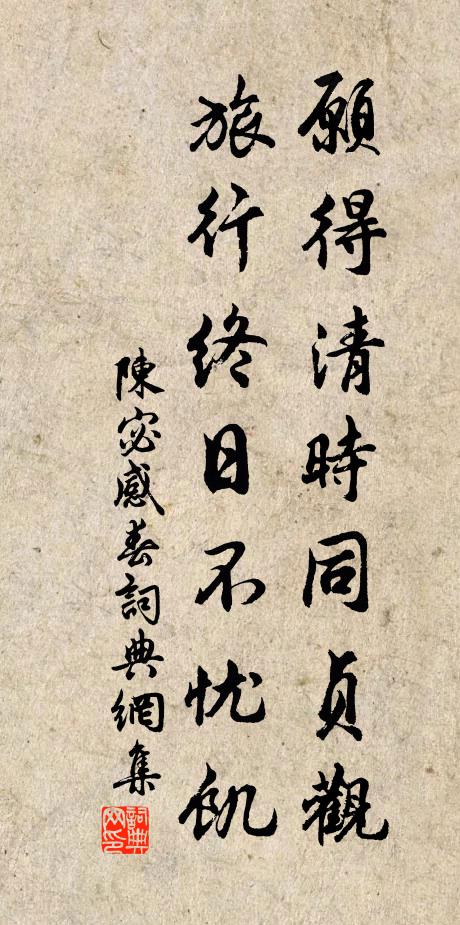 願得清時同貞觀
旅行終日不忧飢
陳宓感春詞典網集
詞典网印